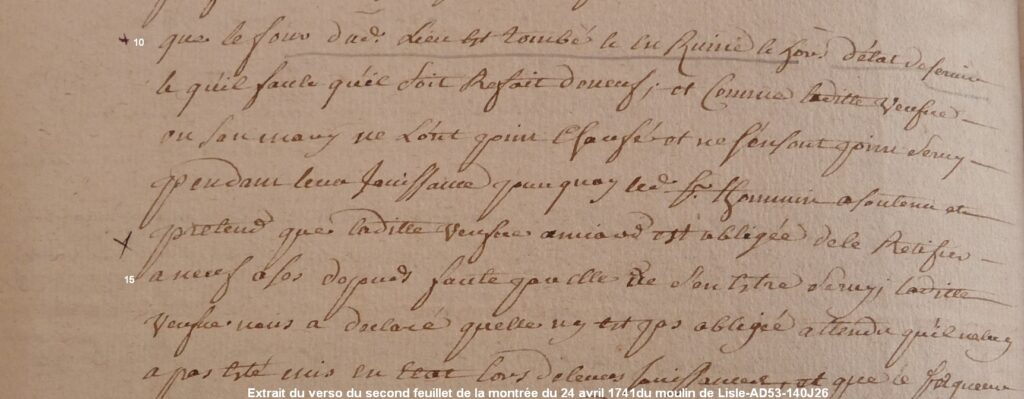 10 que le four dud. Lieu est tombé & en Ruine & hors d'état de servir
& qu'il faute qu'il soit Refait de neuf; et Comme laditte Veufve
ou son mary ne L'ont point Chaufé et ne s'en sont point servy
pendant leur Jouissance pourquoy led. Sr. a soutenu et
pretend que laditte Veufve est obligée de le Retifier
15 a neuf a ses depends faute quelle de s'en Estre servy; laditte
Veufve nous a declaré quelle n'y est pas obligée attendu qu'il ne luy
a pas Esté mis en Etat lors de leur Jouissance et que le
Extrait du verso du second feuillet de la montrée du 24 avril 1741du moulin de Lisle-AD53-140J26